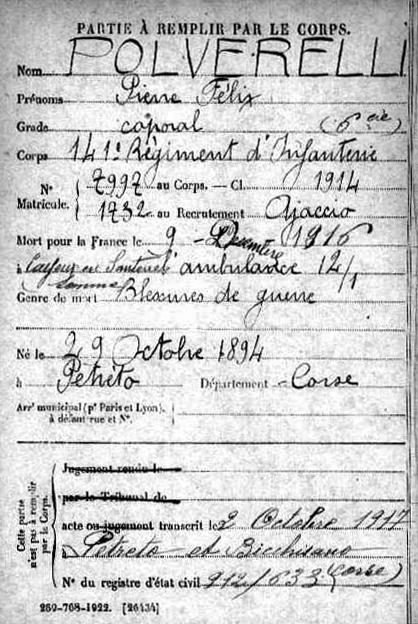 PARTIE À REMPLIR PAR LE CORPS.
Nom POLVERELLI
Prénoms Pierre Félix
Grade caporal (6e Cie)
Corps 141e Régiment d'Infanterie
N° Matricule. { 7997 au Corps. — Cl. 1914
1732 au Recrutement Ajaccio
Mort pour la France le 9 Décembre 1916
à Cayeux en Santerre l'ambulance 12/1
Somme
Genre de mort Blessures de guerre
Né le 29 Octobre 1894
à Petreto Département Corse
Arrt municipal (pr Paris et Lyon), à défaut rue et N°.
Cette partie n'est pas à remplir par le Corps.
Jugement rendu le
par le Tribunal de
acte ou jugement transcrit le 2 Octobre 1917
à Petreto et Bicchisano
N° du registre d'état civil 912/633 (Corse)
269-708-1922. [26434]